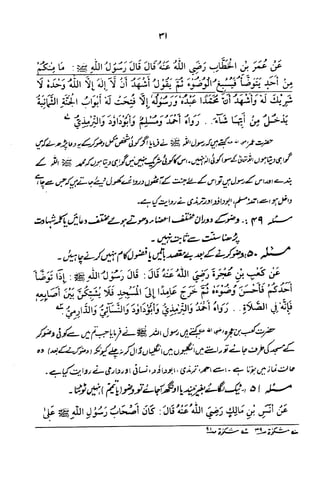 ۳۱
عَنْ عُمَرَ بْنِ الْخَطَّابِ رَضِيَ اللهُ عَنْهُ قَالَ قَالَ رَسُولُ اللهِ ﷺ : مَا مِنْكُمْ
مِنْ أَحَدٍ يَتَوَضَّأُ فَيُسْبِغُ الْوُضُوْءَ ثُمَّ يَقُوْلُ أَشْهَدُ أَنْ لَا إِلٰهَ إِلَّا اللهُ وَحْدَهُ لَا
شَرِيْكَ لَهُ وَأَشْهَدُ أَنَّ مُحَمَّدًا عَبْدُهُ وَرَسُوْلُهُ إِلَّا فُتِحَتْ لَهُ أَبْوَابُ الْجَنَّةِ الثَّمَانِيَةُ
يَدْخُلُ مِنْ أَيِّهَا شَآءَ . رَوَاهُ أَحْمَدُ وَمُسْلِمٌ وَأَبُوْدَاوُدَ وَالتِّرْمِذِيُّ
حضرت عمر کہتے ہیں کہ رسول اللہ ﷺ نے فرمایا اگر کوئی شخص مکمل وضو کر کے یہ دعا پڑھے کہ میں
گواہی دیتا ہوں اللہ کے سوا کوئی الٰہ نہیں۔ اس کا کوئی شریک نہیں میں گواہی دیتا ہوں کہ محمد ﷺ اللہ کے
بندے اور اس کے رسول ہیں تو اس کے لئے جنت کے آٹھوں دروازے کھول دیئے جاتے ہیں کہ جس سے چاہے
داخل ہو۔ اسے احمد، مسلم، ابوداؤد اور ترمذی نے روایت کیا ہے۔
مسئلہ ۴۹ : وضو کے دوران مختلف اعضاء دھوتے ہوئے مختلف دعائیں یا کلمہ شہادت
پڑھنا سنت سے ثابت نہیں۔
مسئلہ ۵۰ : وضو کرنے کے بعد بے مقصد باتیں یا فضول کام نہیں کرنے چاہئیں۔
عَنْ كَعْبِ بْنِ عُجْرَةَ رَضِيَ اللهُ عَنْهُ قَالَ : قَالَ رَسُوْلُ اللهِ ﷺ : إِذَا تَوَضَّأَ
أَحَدُكُمْ فَأَحْسَنَ وُضُوْءَهُ ثُمَّ خَرَجَ عَامِدًا إِلَى الْمَسْجِدِ فَلَا يُشَبِّكَنَّ بَيْنَ أَصَابِعِهِ
فَإِنَّهُ فِي الصَّلَاةِ . رَوَاهُ أَحْمَدُ وَالتِّرْمِذِيُّ وَأَبُوْدَاوُدَ وَالنَّسَآئِيُّ وَالدَّارِمِيُّ
حضرت کعب بن عجرہ کہتے ہیں رسول اللہ ﷺ نے فرمایا جب تم میں سے کوئی وضو کر
کے مسجد کی طرف جائے تو راستے میں انگلیوں میں انگلیاں ڈال کر نہ چلے کیونکہ (وضو کرنے کے بعد) وہ
حالت نماز میں ہوتا ہے۔ اسے احمد، ترمذی، ابوداؤد، نسائی اور دارمی نے روایت کیا ہے۔
مسئلہ ۵۱ : ٹیک لگائے بغیر نیند یا اونگھ آ جائے تو وضو یا تیمم نہیں ٹوٹتا۔
عَنْ أَنَسِ بْنِ مَالِكٍ رَضِيَ اللهُ عَنْهُ قَالَ : كَانَ أَصْحَابُ رَسُوْلِ اللهِ ﷺ عَلٰى